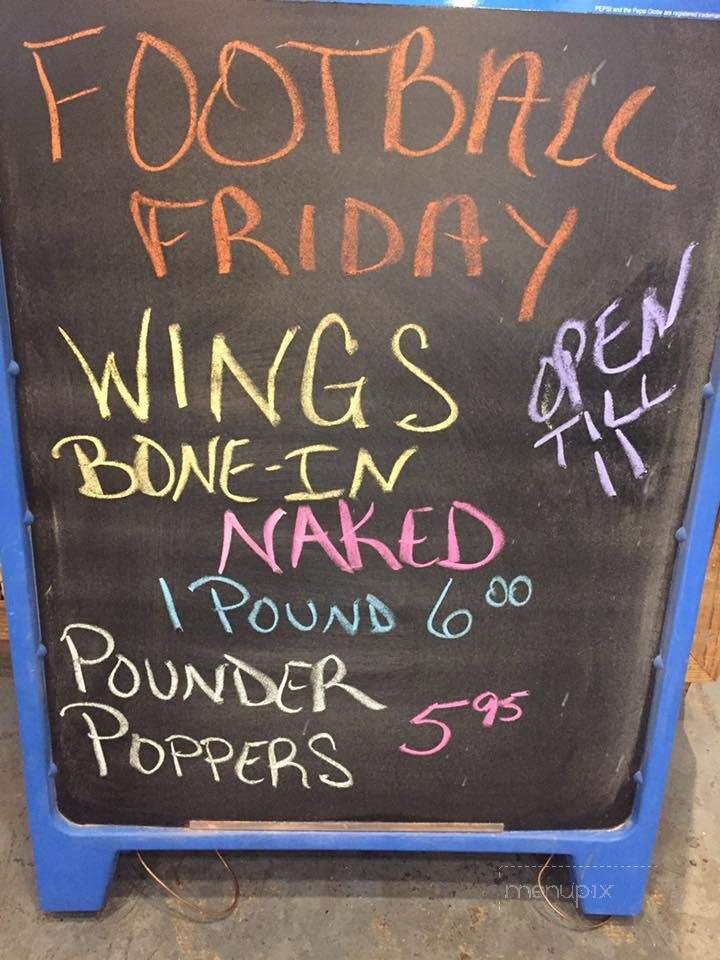 PEPSI and the Pepsi Globe are registered trademar
FOOTBALL
FRIDAY
WINGS
BONE-IN
OPEN
TILL
11
NAKED
1 POUND 6 00
POUNDER
POPPERS 5 95
menupix